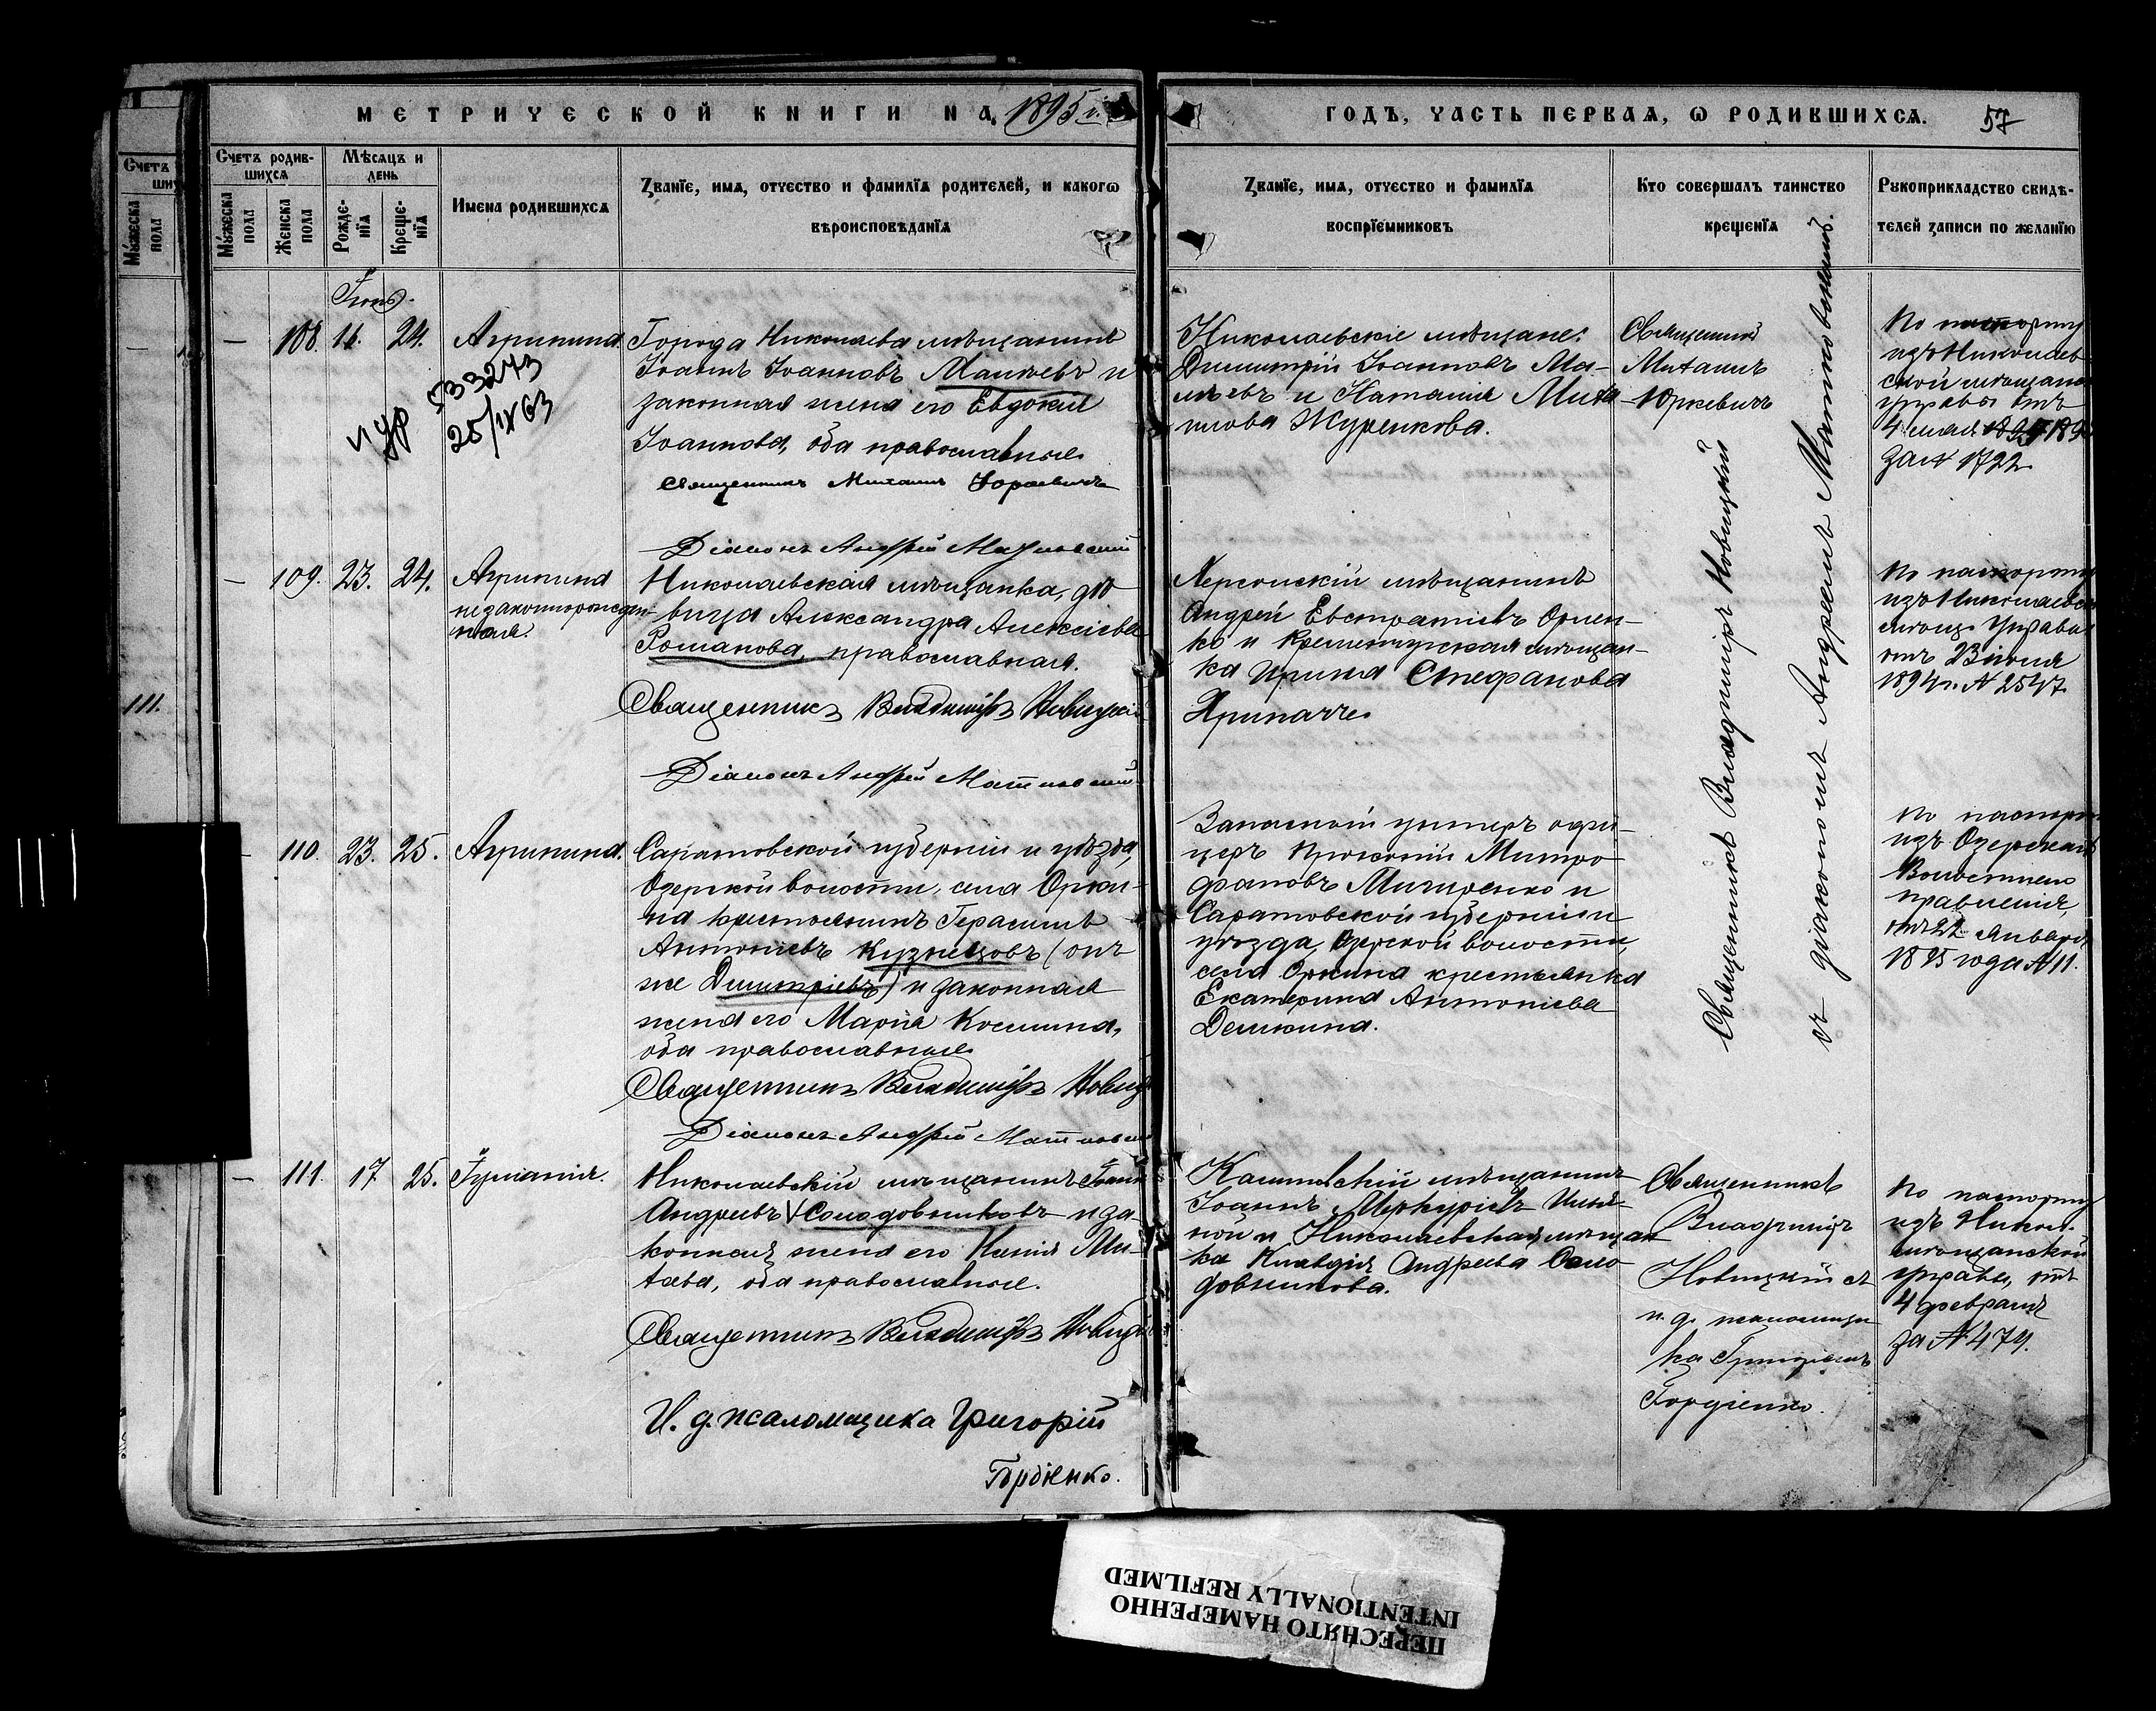 МЕТРИЧЕСКОЙ КНИГИ НА 1895 г.
ГОДЪ, ЧАСТЬ ПЕРВАЯ, Ѡ РОДИВШИХСЯ. 57
Счетъ родив-
шихся
Мѣсяцъ и
день
Мужеска
пола
Женска
пола
Рожде-
нія
Креще-
нія
Имена родившихся
Званїе, имя, отчество и фамилїя родителей, и какогѡ
вѣроисповѣданїя
Званїе, имя, отчество и фамилїя
воспрїемниковъ
Кто совершалъ таинство
крещенїя
Рукоприкладство свидѣ-
телей записи по желанїю
Іюнь.
108. 16. 24. Агрипина.
533273
25/IX 63
Города Николаева мѣщанинъ
Іоаннъ Іоанновъ и
законная жена его Евдокія
Іоаннова, оба православные
Священникъ Михаилъ Юркевичъ
Діаконъ Андрей Матковскій
Николаевскіе мѣщане:
Димитрій Іоанновъ Ма-
и Наталія Миха
илова Журенкова.
Священникъ
Михаилъ
Юркевичъ
По паспорту
изъ Николаев-
ской мѣщанс
управы отъ
4 мая
за № 1722
109. 23. 24. Агрипина
незаконнорожден-
ная.
Николаевская мѣщанка, дѣ-
вица Александра Алексіева
Романова, православная.
Священникъ Владиміръ Новицкій
Діаконъ Андрей Матковскій
Херсонскій мѣщанинъ
Андрей Евстратіевъ Орлен-
ко и Кременчугская мѣщан-
ка Ирина Стефанова
Священникъ Владиміръ Новицкій
съ діакономъ Андреемъ Матковскимъ.
По паспорту
изъ Николаевск
мѣщ. Управы
отъ 23 іюня
1894 г. № 2547
110. 23. 25. Агрипина.
Саратовской губерніи и уѣзда,
Озерской волости, села Орки-
на крестьянинъ Герасимъ
Антоніевъ Кузнецовъ (онъ
же Димитріевъ) и законная
жена его Марія Космина,
оба православные
Священникъ Владиміръ Новиц
Діаконъ Андрей Матковск
Запасной унтеръ офи-
церъ Прокопій Митро
фановъ и
Саратовской губерніи и
уѣзда, Озерской волости,
села Оркина крестьянка
Екатерина Антоніева
Демкина.
По паспорт
изъ Озерскаго
Волостнаго
правленія,
отъ 22 Января
1895 года № 11.
111. 17 25. Іуліанія.
Николаевскій мѣщанинъ Іоаннъ
Андреевъ Солодовниковъ и за-
конная жена его Ксенія Ми-
хаева, оба православные.
Священникъ Владиміръ Новицк
И. д. псаломщика Григорій
Гордіенко.
мѣщанинъ
Іоаннъ Меркуріевъ
и Николаевская мѣщан
ка Клавдія Андреева Соло
довникова.
Священникъ
Владиміръ
Новицкій съ
и. д. псаломщи
ка Григоріемъ
Гордіенко.
По паспорту
изъ Никол.
мѣщанской
управы, отъ
4 февраля
за № 474.
Счетъ
ши
Мужеска
пола
111.
ПЕРЕСНЯТО НАМЕРЕННО
INTENTIONALLY REFILMED